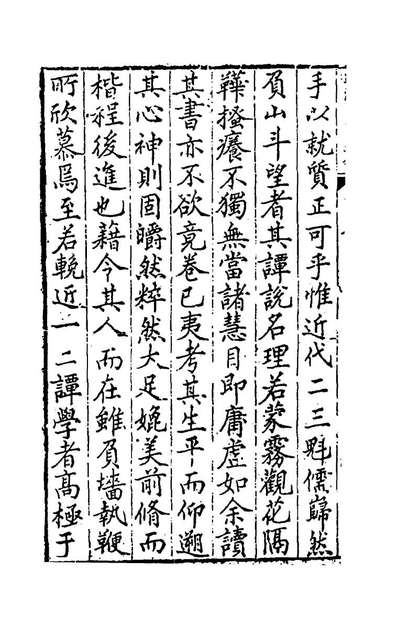 手以就質正可乎惟近代二三魁儒巋然
負山斗望者其譚說名理若蒙霧觀花隔
鞾搔癢不獨無當諸慧目即庸虛如余讀
其書亦不欲竟卷已夷考其生平而仰遡
其心神則固皭然粹然大足媲美前脩而
楷程後進也藉今其人而在雖負墻執鞭
所欣慕焉至若輓近一二譚學者高極于